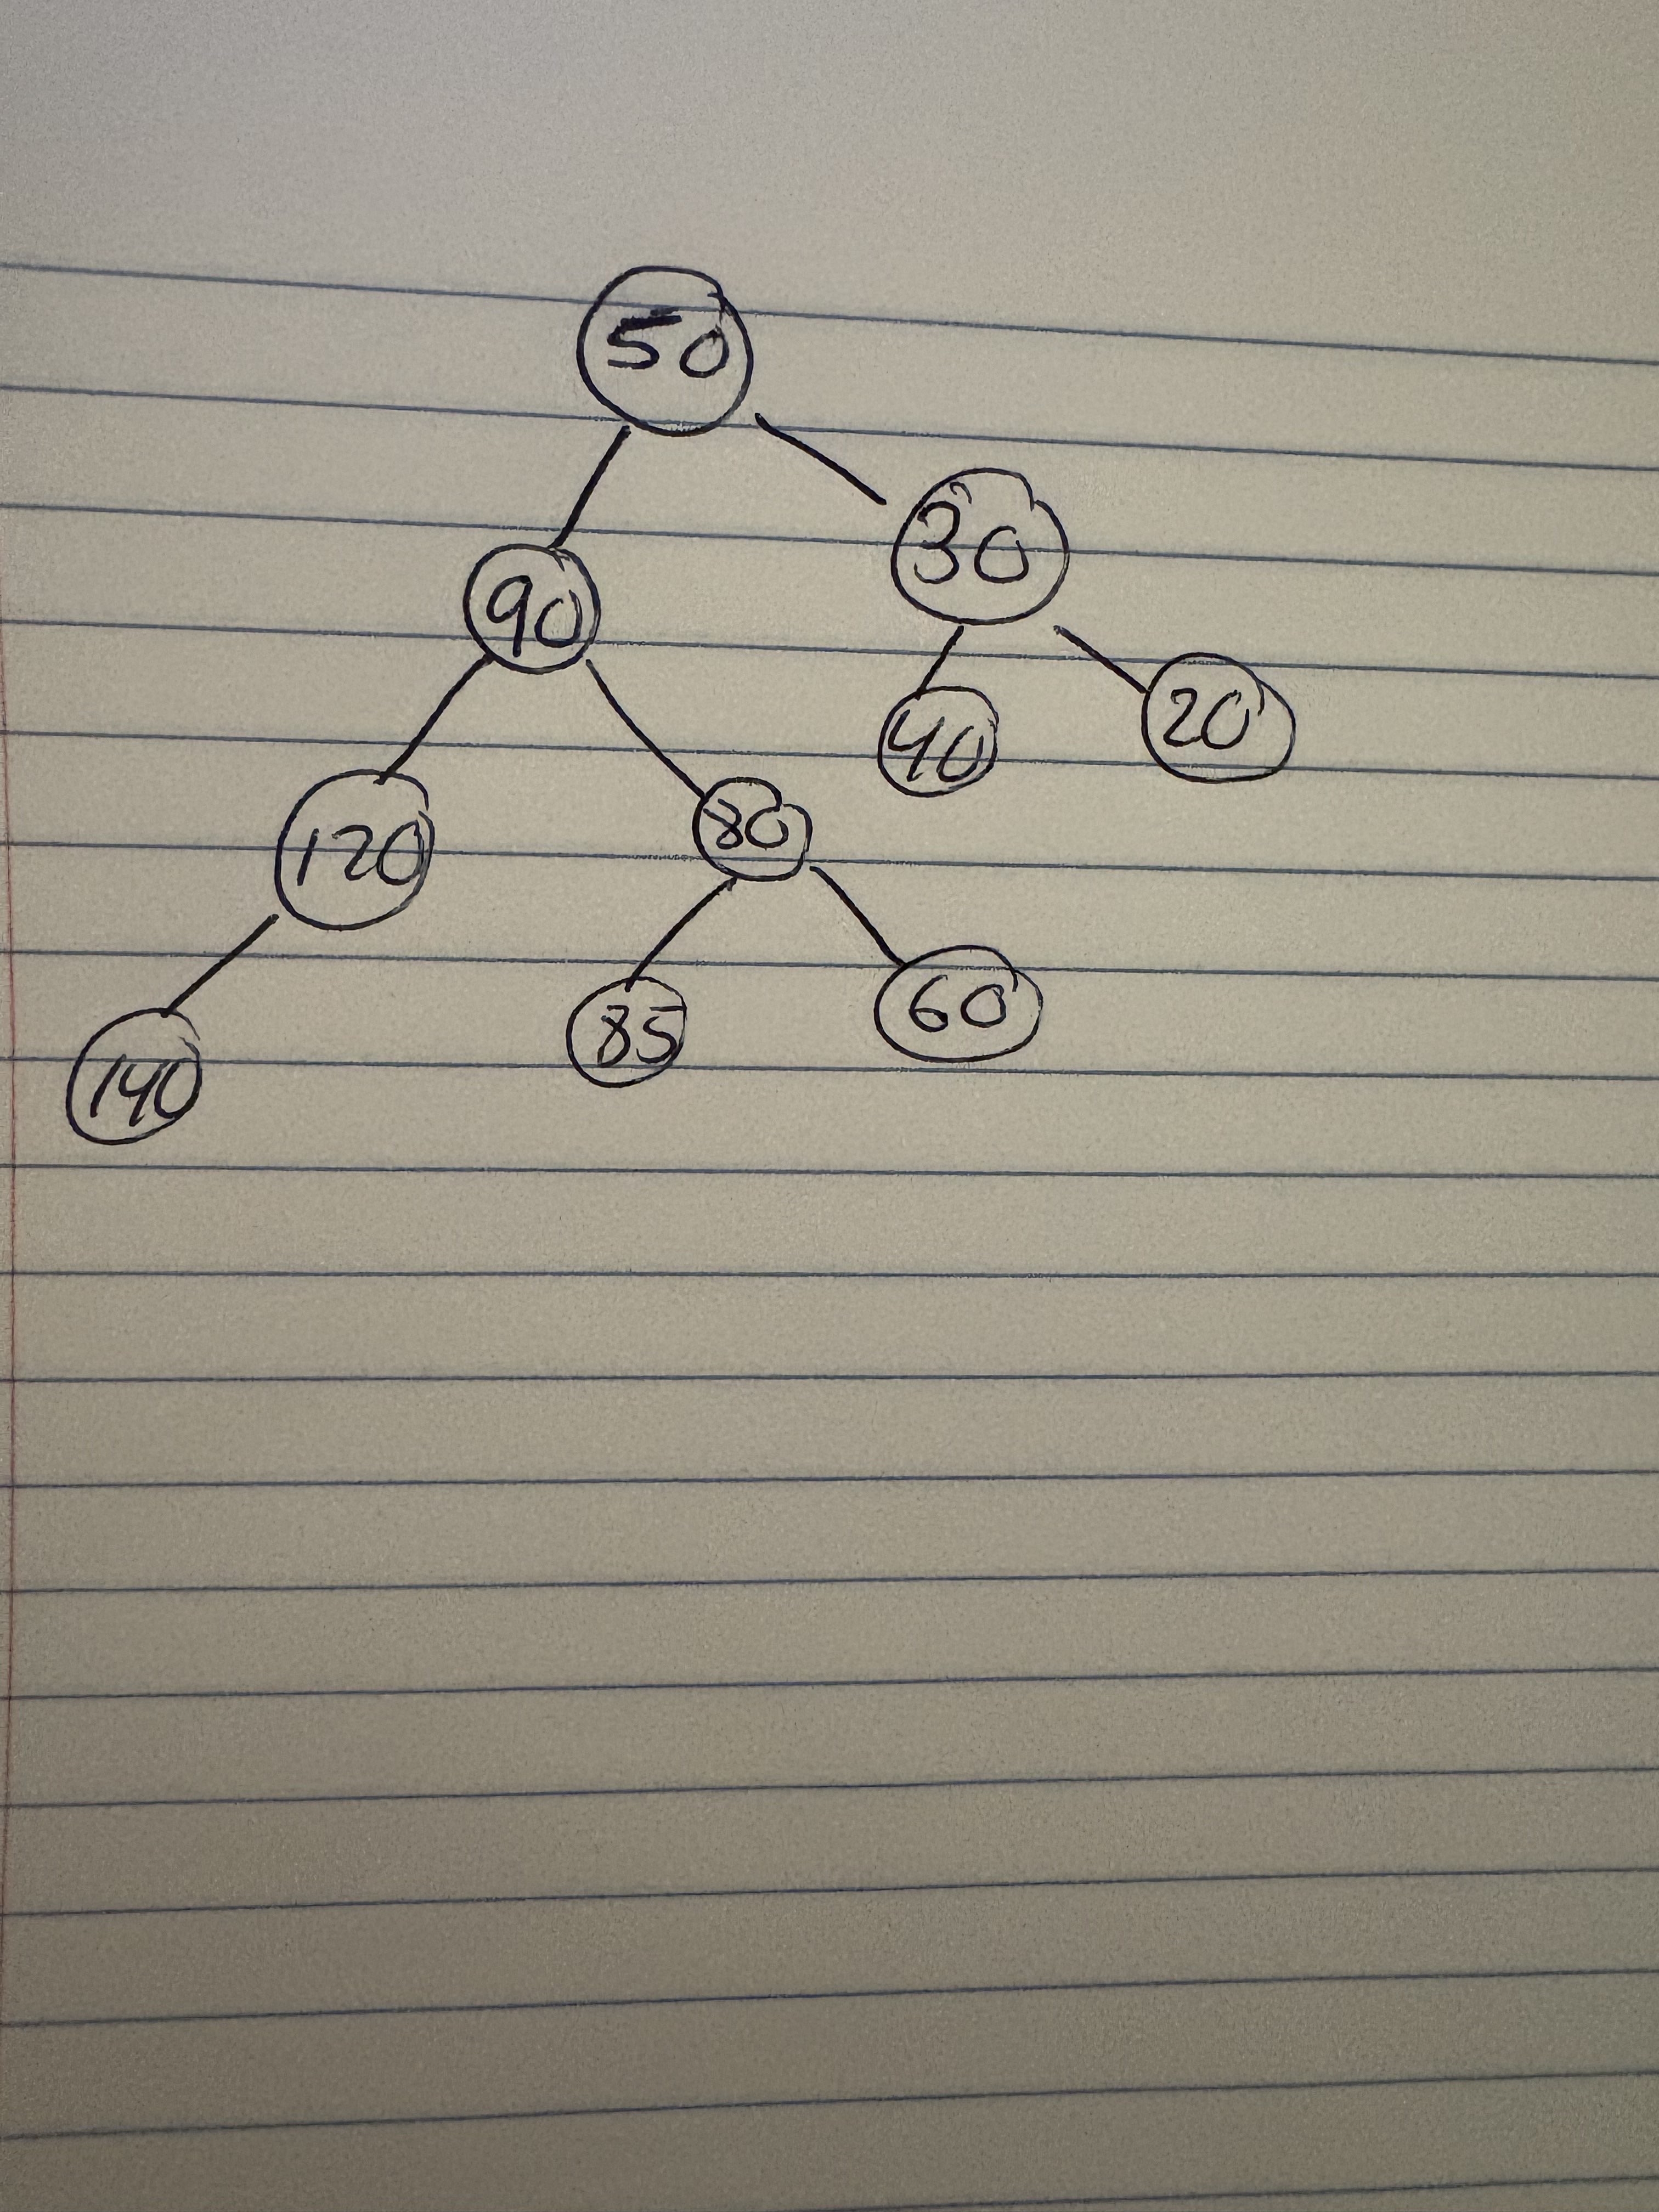 50
90 30
120 80 40 20
140 85 60